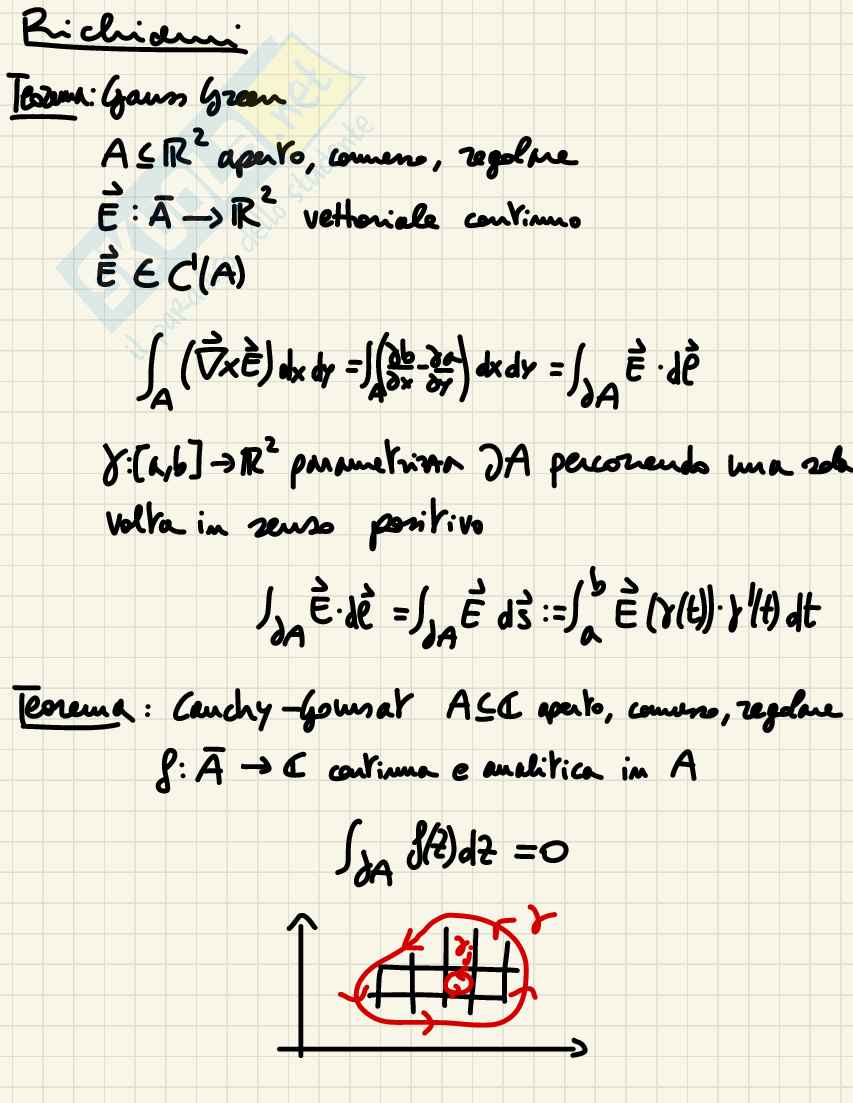 Richiami
Teorema: Gauss Green
A ⊆ ℝ² aperto, connesso, regolare
E⃗ : Ā → ℝ² vettoriale continuo
E⃗ ∈ C¹(A)
∫_A (∇⃗ × E⃗) dx dy = ∫_A (∂b/∂x - ∂a/∂y) dx dy = ∫_∂A E⃗ · dℓ⃗
γ: [a,b] → ℝ² parametrizza ∂A percorrendo una sola
volta in senso positivo
∫_∂A E⃗ · dℓ⃗ = ∫_∂A E⃗ ds⃗ := ∫_a^b E⃗ (γ(t)) · γ'(t) dt
Teorema: Cauchy-Goursat A ⊆ ℂ aperto, connesso, regolare
f: Ā → ℂ continua e analitica in A
∫_∂A f(z) dz = 0
γ
γj